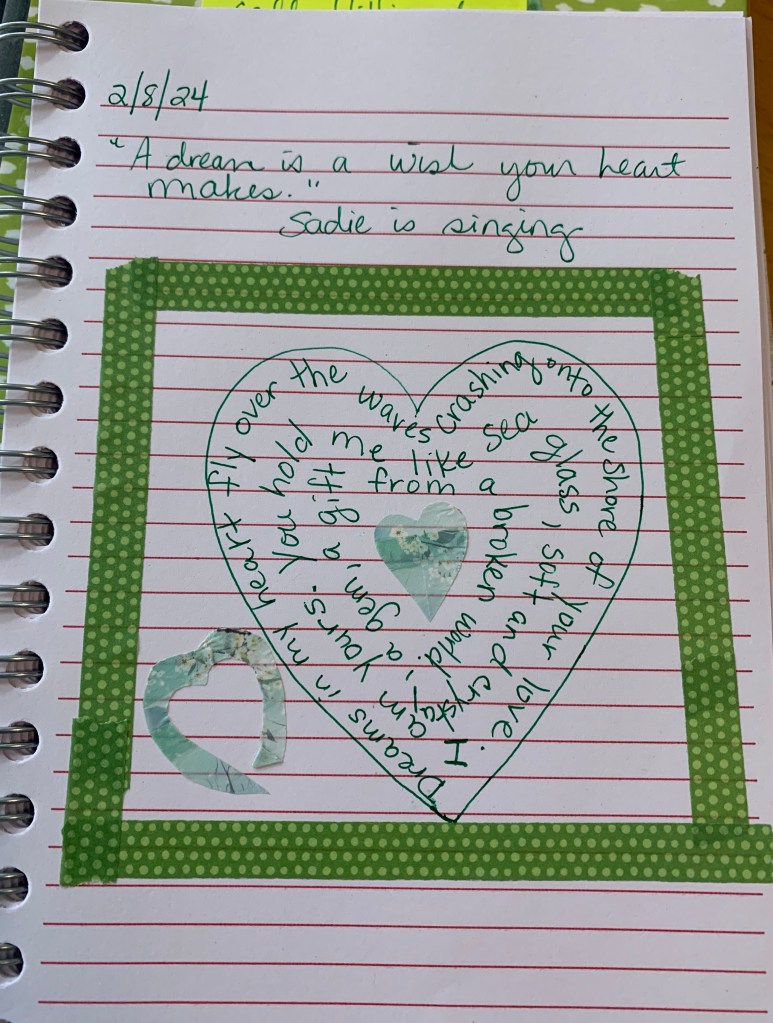 2/8/24
"A dream is a wish your heart
makes."
Sadie is singing
Dreams in my heart fly over the waves crashing onto the shore of your love.
I am yours. You hold me like sea glass, soft and crystal,
a gem, a gift from a broken world.